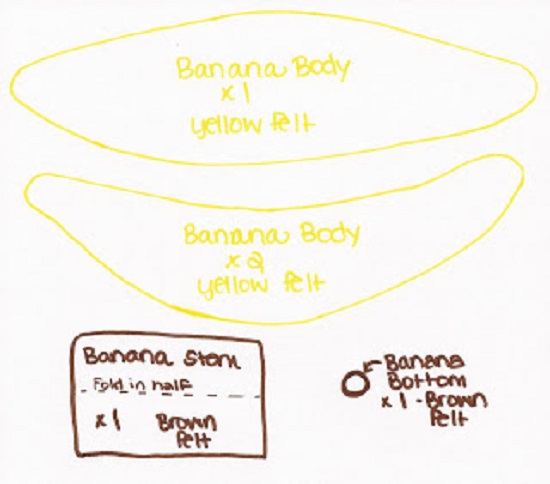 Banana Body
x 1
yellow felt
Banana Body
x 2
yellow felt
Banana Stem
Fold in half
x 1 Brown
felt
Banana
Bottom
x 1 - Brown
felt